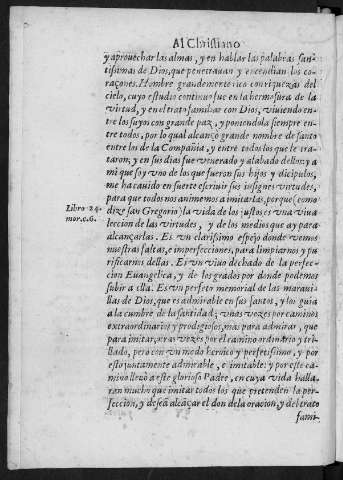 Al Christiano
y aprouechar las almas, y en hablar las palabras san-
tissimas de Dios, que penetrauan y encendian los co-
raçones. Hombre grandemente rico con riquezas del
cielo, cuyo estudio continuo fue en la hermosura de la
virtud, y en el trato familiar con Dios, viuiendo entre
los suyos con grande paz, y poniendola siempre en-
tre todos, por lo qual alcançó grande nombre de santo
entre los de la Compañia, y entre todos los que le tra-
taron; y en sus dias fue venerado y alabado dellos: y a
mi que soy vno de los que fueron sus hijos y dicipulos,
me ha cauido en suerte escriuir sus insignes virtudes,
para que todos nos animemos a imitarlas, porque (como
Libro 24.
mor. c. 6.
dize san Gregorio) la vida de los justos es vna viua
leccion de las virtudes, y de los medios que ay para
alcançarlas. Es vn clarissimo espejo donde vemos
nuestras faltas, e imperfecciones, para limpiarnos y pu-
rificarnos dellas. Es vn viuo dechado de la perfec-
cion Euangelica, y de los grados por donde podemos
subir a ella. Es vn perfeto memorial de las maraui-
llas de Dios, que es admirable en sus santos, y los guia
a la cumbre de la santidad; vnas vezes por caminos
extraordinarios y prodigiosos, mas para admirar, que
para imitar, otras vezes por el camino ordinario y tri-
llado, pero con vn modo heroico y perfetissimo, y por
esto juntamente admirable, e imitable: y por este ca-
mino lleuó a este glorioso Padre, en cuya vida halla-
ran mucho que imitar todos los que pretenden la per-
feccion, y desean alcãçar el don de la oracion, y del trato
fami-